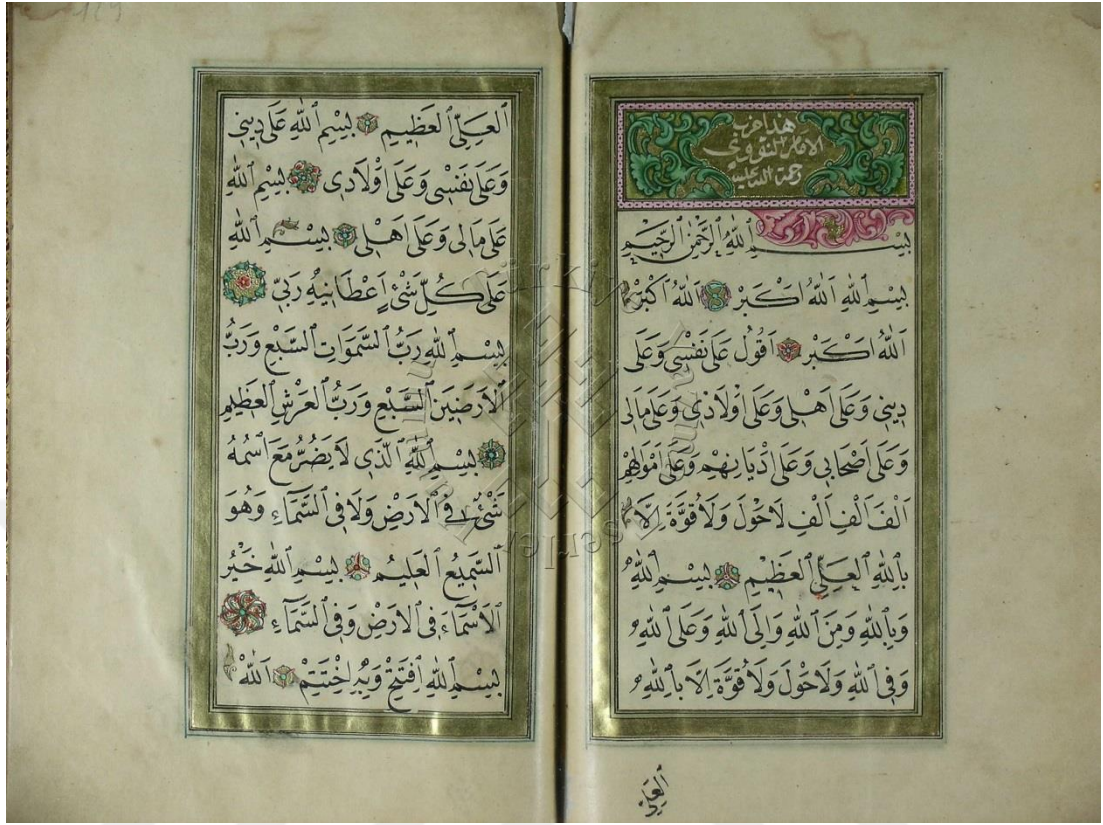 هذا حزب
الامام النووى
رحمة الله عليه
بِسْمِ ٱللّٰهِ ٱلرَّحْمٰنِ ٱلرَّحِيْمِ
بِسْمِ ٱللّٰهِ اَللّٰهُ اَكْبَرْ اَللّٰهُ اَكْبَرْ
اَللّٰهُ اَكْبَرْ اَقُوْلُ عَلٰى نَفْسٖى وَعَلٰى
دٖينٖى وَعَلٰى اَهْلٖى وَعَلٰى اَوْلَادٖى وَعَلٰى مَالٖى
وَعَلٰى اَصْحَابٖى وَعَلٰى اَدْيَانِهِمْ وَعَلٰى اَمْوَالِهِمْ
اَلْفَ اَلْفِ اَلْفِ لَاحَوْلَ وَلَا قُوَّةَ اِلَّا
بِٱللّٰهِ ٱلْعَلِىِّ ٱلْعَظٖيْمِ بِسْمِ ٱللّٰهِ
وَبِٱللّٰهِ وَمِنَ ٱللّٰهِ وَاِلَى ٱللّٰهِ وَعَلَى ٱللّٰهِ
وَفِى ٱللّٰهِ وَلَاحَوْلَ وَلَا قُوَّةَ اِلَّا بِٱللّٰهِ
ٱلْعَلِىِّ
ٱلْعَلِىِّ ٱلْعَظٖيمِ بِسْمِ ٱللّٰهِ عَلٰى دٖينٖى
وَعَلٰى نَفْسٖى وَعَلٰى اَوْلَادٖى بِسْمِ ٱللّٰهِ
عَلٰى مَالٖى وَعَلٰى اَهْلٖى بِسْمِ ٱللّٰهِ
عَلٰى كُلِّ شَىْءٍ اَعْطَانٖيهِ رَبّٖى
بِسْمِ ٱللّٰهِ رَبُّ ٱلسَّمٰوَاتِ ٱلسَّبْعِ وَرَبُّ
ٱلْاَرَضٖينَ ٱلسَّبْعِ وَرَبُّ ٱلْعَرْشِ ٱلْعَظٖيمِ
بِسْمِ ٱللّٰهِ ٱلَّذٖى لَا يَضُرُّ مَعَ ٱسْمُهُ
شَىْءٌ فِى ٱلْاَرْضِ وَلَا فِى ٱلسَّمَآءِ وَهُوَ
ٱلسَّمٖيعُ ٱلْعَلٖيمُ بِسْمِ ٱللّٰهِ خَيْرُ
ٱلْاَسْمَآءِ فِى ٱلْاَرْضِ وَفِى ٱلسَّمَآءِ
بِسْمِ ٱللّٰهِ اَفْتَتِحُ وَبِهٖ اَخْتَتِمْ اَللّٰهُ